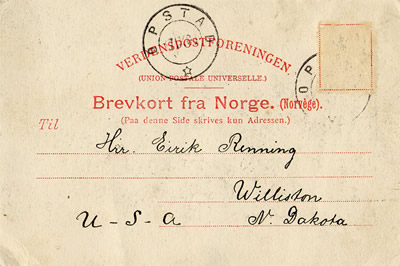 OPSTAD
VERDENSPOSTFORENINGEN.
(UNION POSTALE UNIVERSELLE.)
Brevkort fra Norge. (Norvège).
(Paa denne Side skrives kun Adressen.)
Til
Hr. Eirik Renning
Williston
U-S-A N. Dakota